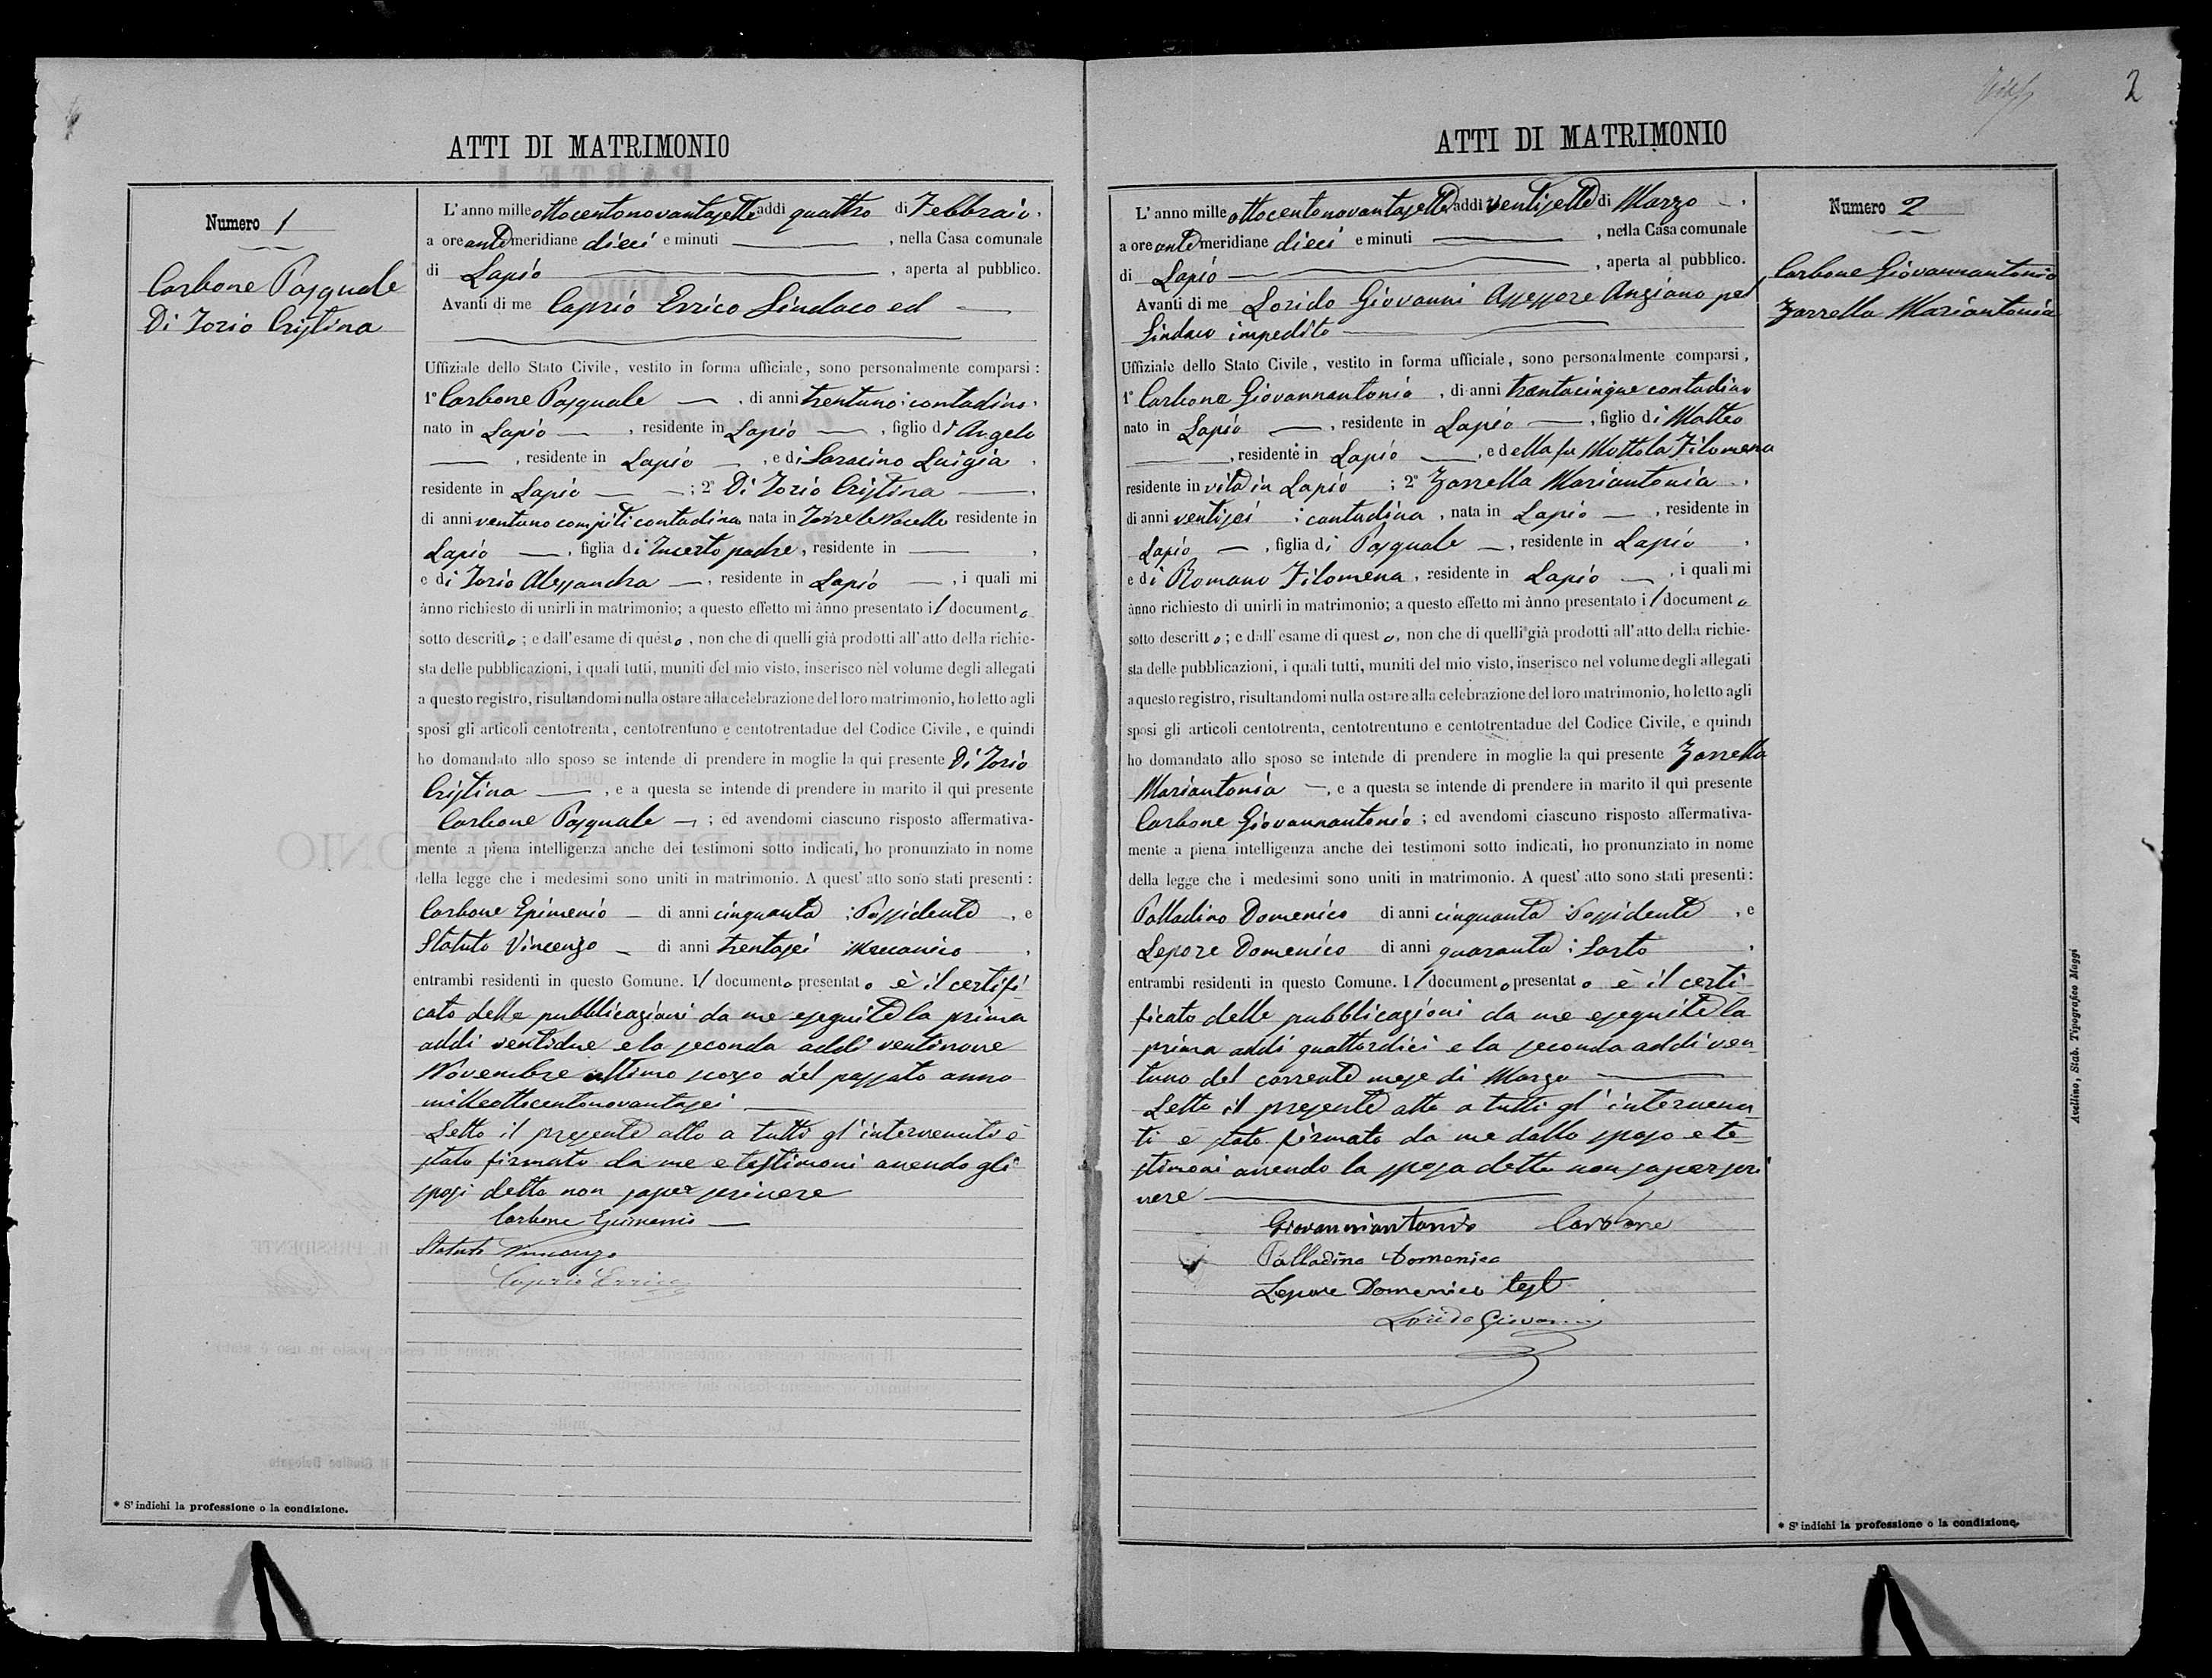 ATTI DI MATRIMONIO
Numero 1
Carbone Pasquale
Di Iorio Cristina
L'anno mille ottocentonovantasette addì quattro di Febbraio,
a ore antemeridiane dieci e minuti , nella Casa comunale
di Lapio , aperta al pubblico.
Avanti di me Caprio Errico Sindaco ed
Uffiziale dello Stato Civile, vestito in forma ufficiale, sono personalmente comparsi:
1° Carbone Pasquale , di anni trentuno; contadino,
nato in Lapio , residente in Lapio , figlio di Angelo
, residente in Lapio , e di Saracino Luigia ,
residente in Lapio ; 2° Di Iorio Cristina ,
di anni ventuno compiti contadina nata in Torre le Nocelle residente in
Lapio , figlia di Incerto padre, residente in ,
e di Iorio Alessandra , residente in Lapio , i quali mi
ànno richiesto di unirli in matrimonio; a questo effetto mi ànno presentato il documento
sotto descritto; e dall'esame di questo, non che di quelli già prodotti all'atto della richie-
sta delle pubblicazioni, i quali tutti, muniti del mio visto, inserisco nel volume degli allegati
a questo registro, risultandomi nulla ostare alla celebrazione del loro matrimonio, ho letto agli
sposi gli articoli centotrenta, centotrentuno e centotrentadue del Codice Civile, e quindi
ho domandato allo sposo se intende di prendere in moglie la qui presente Di Iorio
Cristina , e a questa se intende di prendere in marito il qui presente
Carbone Pasquale ; ed avendomi ciascuno risposto affermativa-
mente a piena intelligenza anche dei testimoni sotto indicati, ho pronunziato in nome
della legge che i medesimi sono uniti in matrimonio. A quest'atto sono stati presenti:
Carbone Epimenio di anni cinquanta ; Possidente , e
Statuto Vincenzo di anni trentasei Meccanico ,
entrambi residenti in questo Comune. Il documento presentato è il certifi-
cato delle pubblicazioni da me eseguite la prima
addì ventidue e la seconda addì ventinove
Novembre ultimo scorso del passato anno
milleottocentonovantasei
Letto il presente atto a tutti gl'intervenuti è
stato firmato da me e testimoni avendo gli
sposi detto non saper scrivere
Carbone Epimenio
Statuto Vincenzo
Caprio Errico
* S'indichi la professione o la condizione.
2
ATTI DI MATRIMONIO
Numero 2
Carbone Giovannantonio
Zarrella Mariantonia
L'anno mille ottocentonovantasette addì ventisette di Marzo ,
a ore antemeridiane dieci e minuti , nella Casa comunale
di Lapio , aperta al pubblico.
Avanti di me Lorido Giovanni Assessore Anziano pel
Sindaco impedito
Uffiziale dello Stato Civile, vestito in forma ufficiale, sono personalmente comparsi,
1° Carbone Giovannantonio , di anni trentacinque contadino
nato in Lapio , residente in Lapio , figlio di Matteo
, residente in Lapio , e della fu Mottola Filomena
residente in vita in Lapio ; 2° Zarrella Mariantonia ,
di anni ventisei ; contadina , nata in Lapio , residente in
Lapio , figlia di Pasquale , residente in Lapio ,
e di Romano Filomena, residente in Lapio , i quali mi
ànno richiesto di unirli in matrimonio; a questo effetto mi ànno presentato il documento
sotto descritto; e dall'esame di questo, non che di quelli già prodotti all'atto della richie-
sta delle pubblicazioni, i quali tutti, muniti del mio visto, inserisco nel volume degli allegati
a questo registro, risultandomi nulla ostare alla celebrazione del loro matrimonio, ho letto agli
sposi gli articoli centotrenta, centotrentuno e centotrentadue del Codice Civile, e quindi
ho domandato allo sposo se intende di prendere in moglie la qui presente Zarrella
Mariantonia , e a questa se intende di prendere in marito il qui presente
Carbone Giovannantonio ; ed avendomi ciascuno risposto affermativa-
mente a piena intelligenza anche dei testimoni sotto indicati, ho pronunziato in nome
della legge che i medesimi sono uniti in matrimonio. A quest'atto sono stati presenti:
Palladino Domenico di anni cinquanta Possidente , e
Lepore Domenico di anni quaranta ; Sarto ,
entrambi residenti in questo Comune. Il documento presentato è il certi-
ficato delle pubblicazioni da me eseguite la
prima addì quattordici e la seconda addì ven-
tuno del corrente mese di Marzo
Letto il presente atto a tutti gl'intervenu-
ti è stato firmato da me dallo sposo e te-
stimoni avendo la sposa detto non saper scri
vere
Giovanniantonio Carbone
Palladino Domenico
Lepore Domenico test
Lorido Giovanni
* S'indichi la professione o la condizione.
Avellino, Stab. Tipografico Maggi